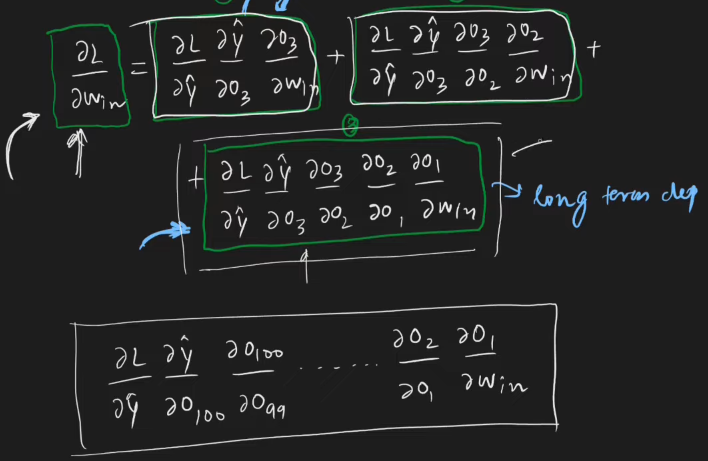 ∂L/∂Win = ∂L/∂Ŷ ∂Ŷ/∂O3 ∂O3/∂Win + ∂L/∂Ŷ ∂Ŷ/∂O3 ∂O3/∂O2 ∂O2/∂Win +
③
+ ∂L/∂Ŷ ∂Ŷ/∂O3 ∂O3/∂O2 ∂O2/∂O1 ∂O1/∂Win → long term dep
∂L/∂Ŷ ∂Ŷ/∂O100 ∂O100/∂O99 ...... ∂O2/∂O1 ∂O1/∂Win